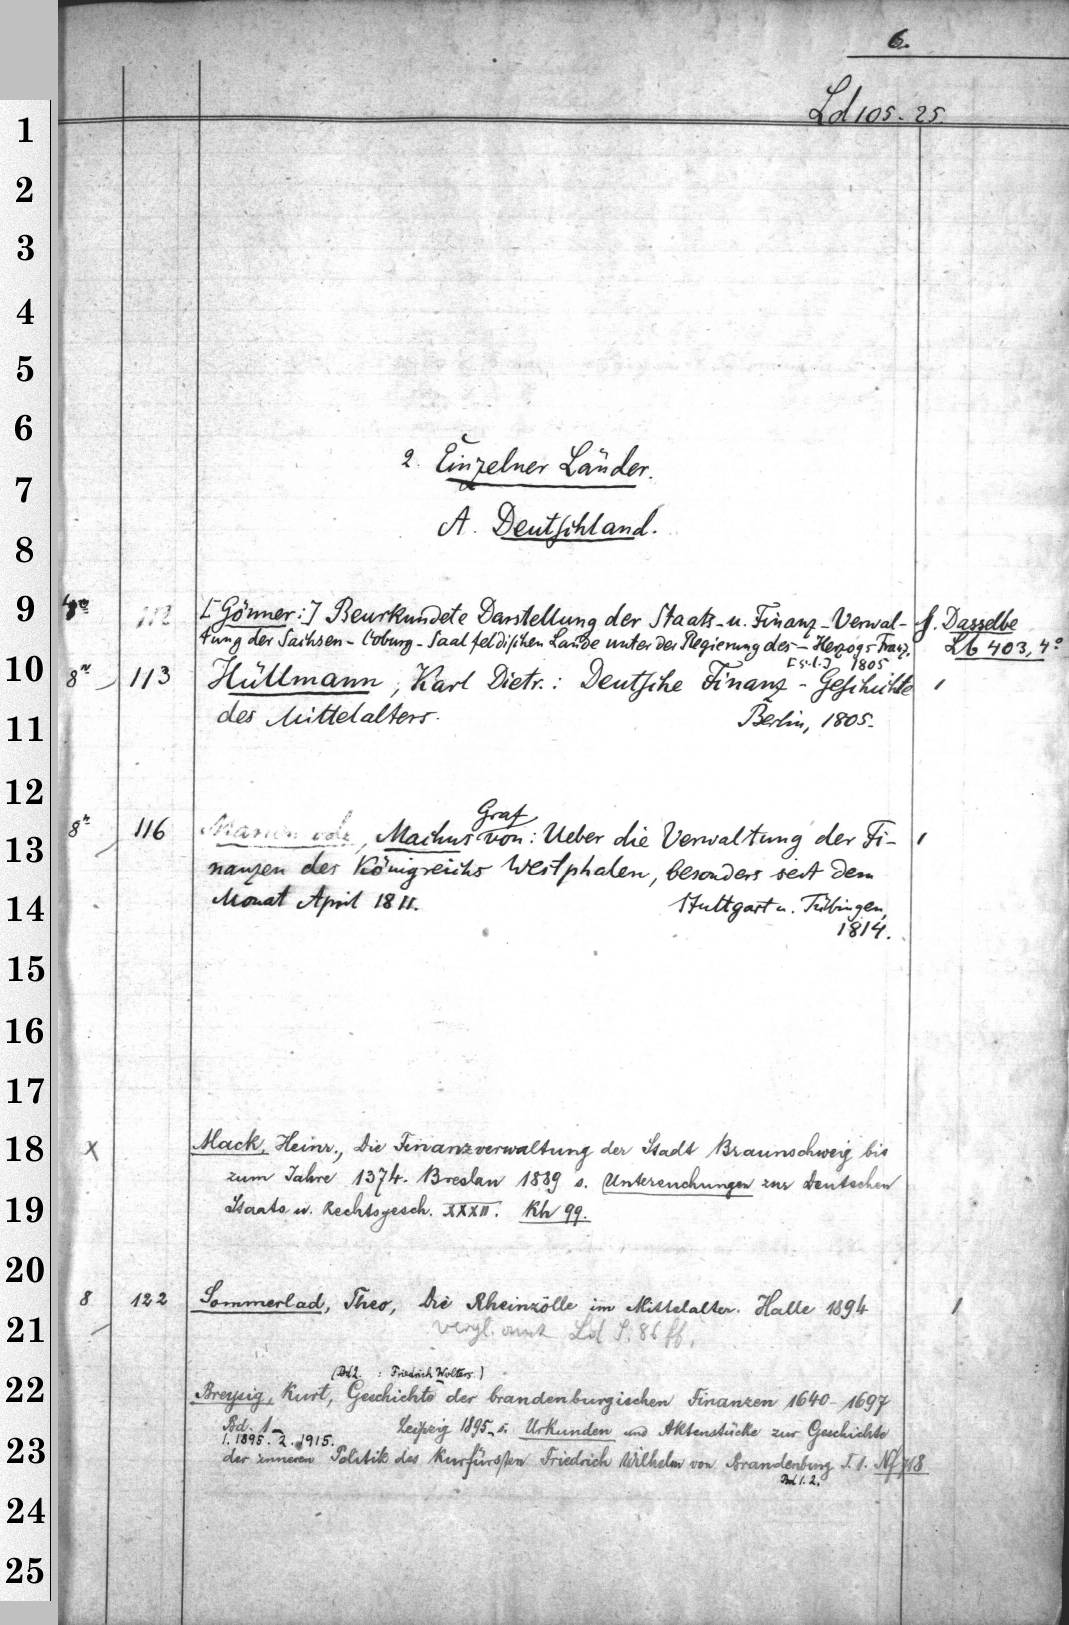 6.
Ld 105. 25.
1
2
3
4
5
6
2. Einzelner Länder.
7
A. Deutschland.
8
9 4° 112 [Gönner:] Beurkundete Darstellung der Staats- u. Finanz-Verwal- s. Dasselbe
tung der Sachsen-Coburg-Saalfeldischen Lande unter der Regierung des - Herzogs Franz. Lb 403, 4°
[s.l.] 1805
10 8° 113 Hüllmann, Karl Dietr.: Deutsche Finanz-Geschichte 1
11 des Mittelalters. Berlin, 1805.
12
Graf
13 8° 116 Malchus von: Ueber die Verwaltung der Fi- 1
nanzen des Königreichs Westphalen, besonders seit dem
14 Monat April 1811. Stuttgart u. Tübingen,
1814.
15
16
17
18 x Mack, Heinr., Die Finanzverwaltung der Stadt Braunschweig bis
zum Jahre 1374. Breslau 1889 s. Untersuchungen zur Deutschen
19 Staats u. Rechtsgesch. XXXII. Kh 99.
20
8 122 Sommerlad, Theo, Die Rheinzölle im Mittelalter. Halle 1894 1
21 vergl. auch Ld S. 86 ff.
(Bd 2. : Friedrich Wolters.)
22 Breysig, Kurt, Geschichte der brandenburgischen Finanzen 1640-1697
Bd. 1- Leipzig 1895- s. Urkunden und Aktenstücke zur Geschichte
1. 1895. 2. 1915.
23 der inneren Politik des Kurfürsten Friedrich Wilhelm von Brandenburg T. 1. Nf 718
Bd 1. 2.
24
25